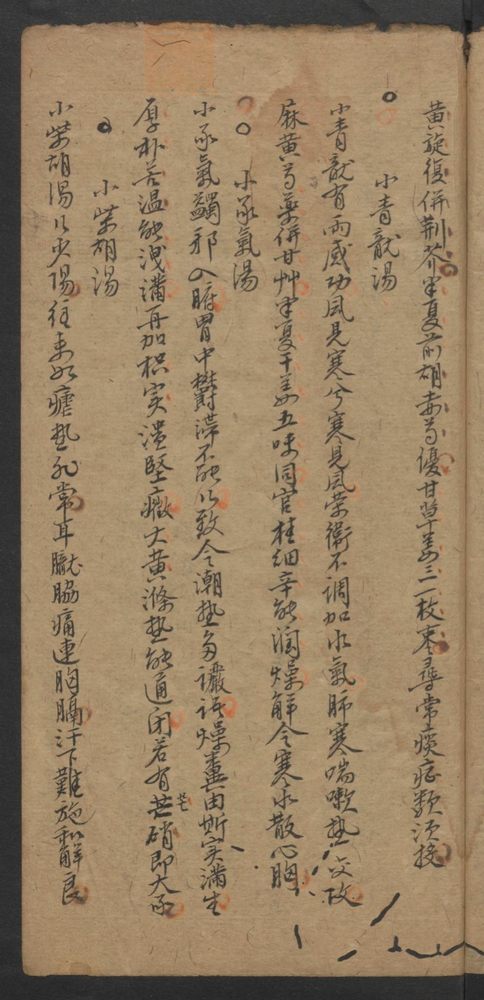 黄旋復併荆芥半夏前胡赤芍優甘草姜三一枚棗尋常痰症類須接
小青龍湯
小青龍有兩感功風見寒兮寒見風荣衛不調加水氣肺寒喘嗽熱交攻
麻黄芍藥併甘艸半夏干姜五味同官桂細辛能润燥解令寒水散心胸
小承氣湯
小承氣蠲邪入腑胃中欝滞不能以致令潮熱多讝語燥糞由斯实滿生
厚朴苦温能洩满再加枳实潰堅癥大黄滌熱能通闭若有芒硝即大承
芒
小柴胡湯
小柴胡湯以少陽往来如瘧熱非常耳聾脇痛連胸膈汗下難施和解良